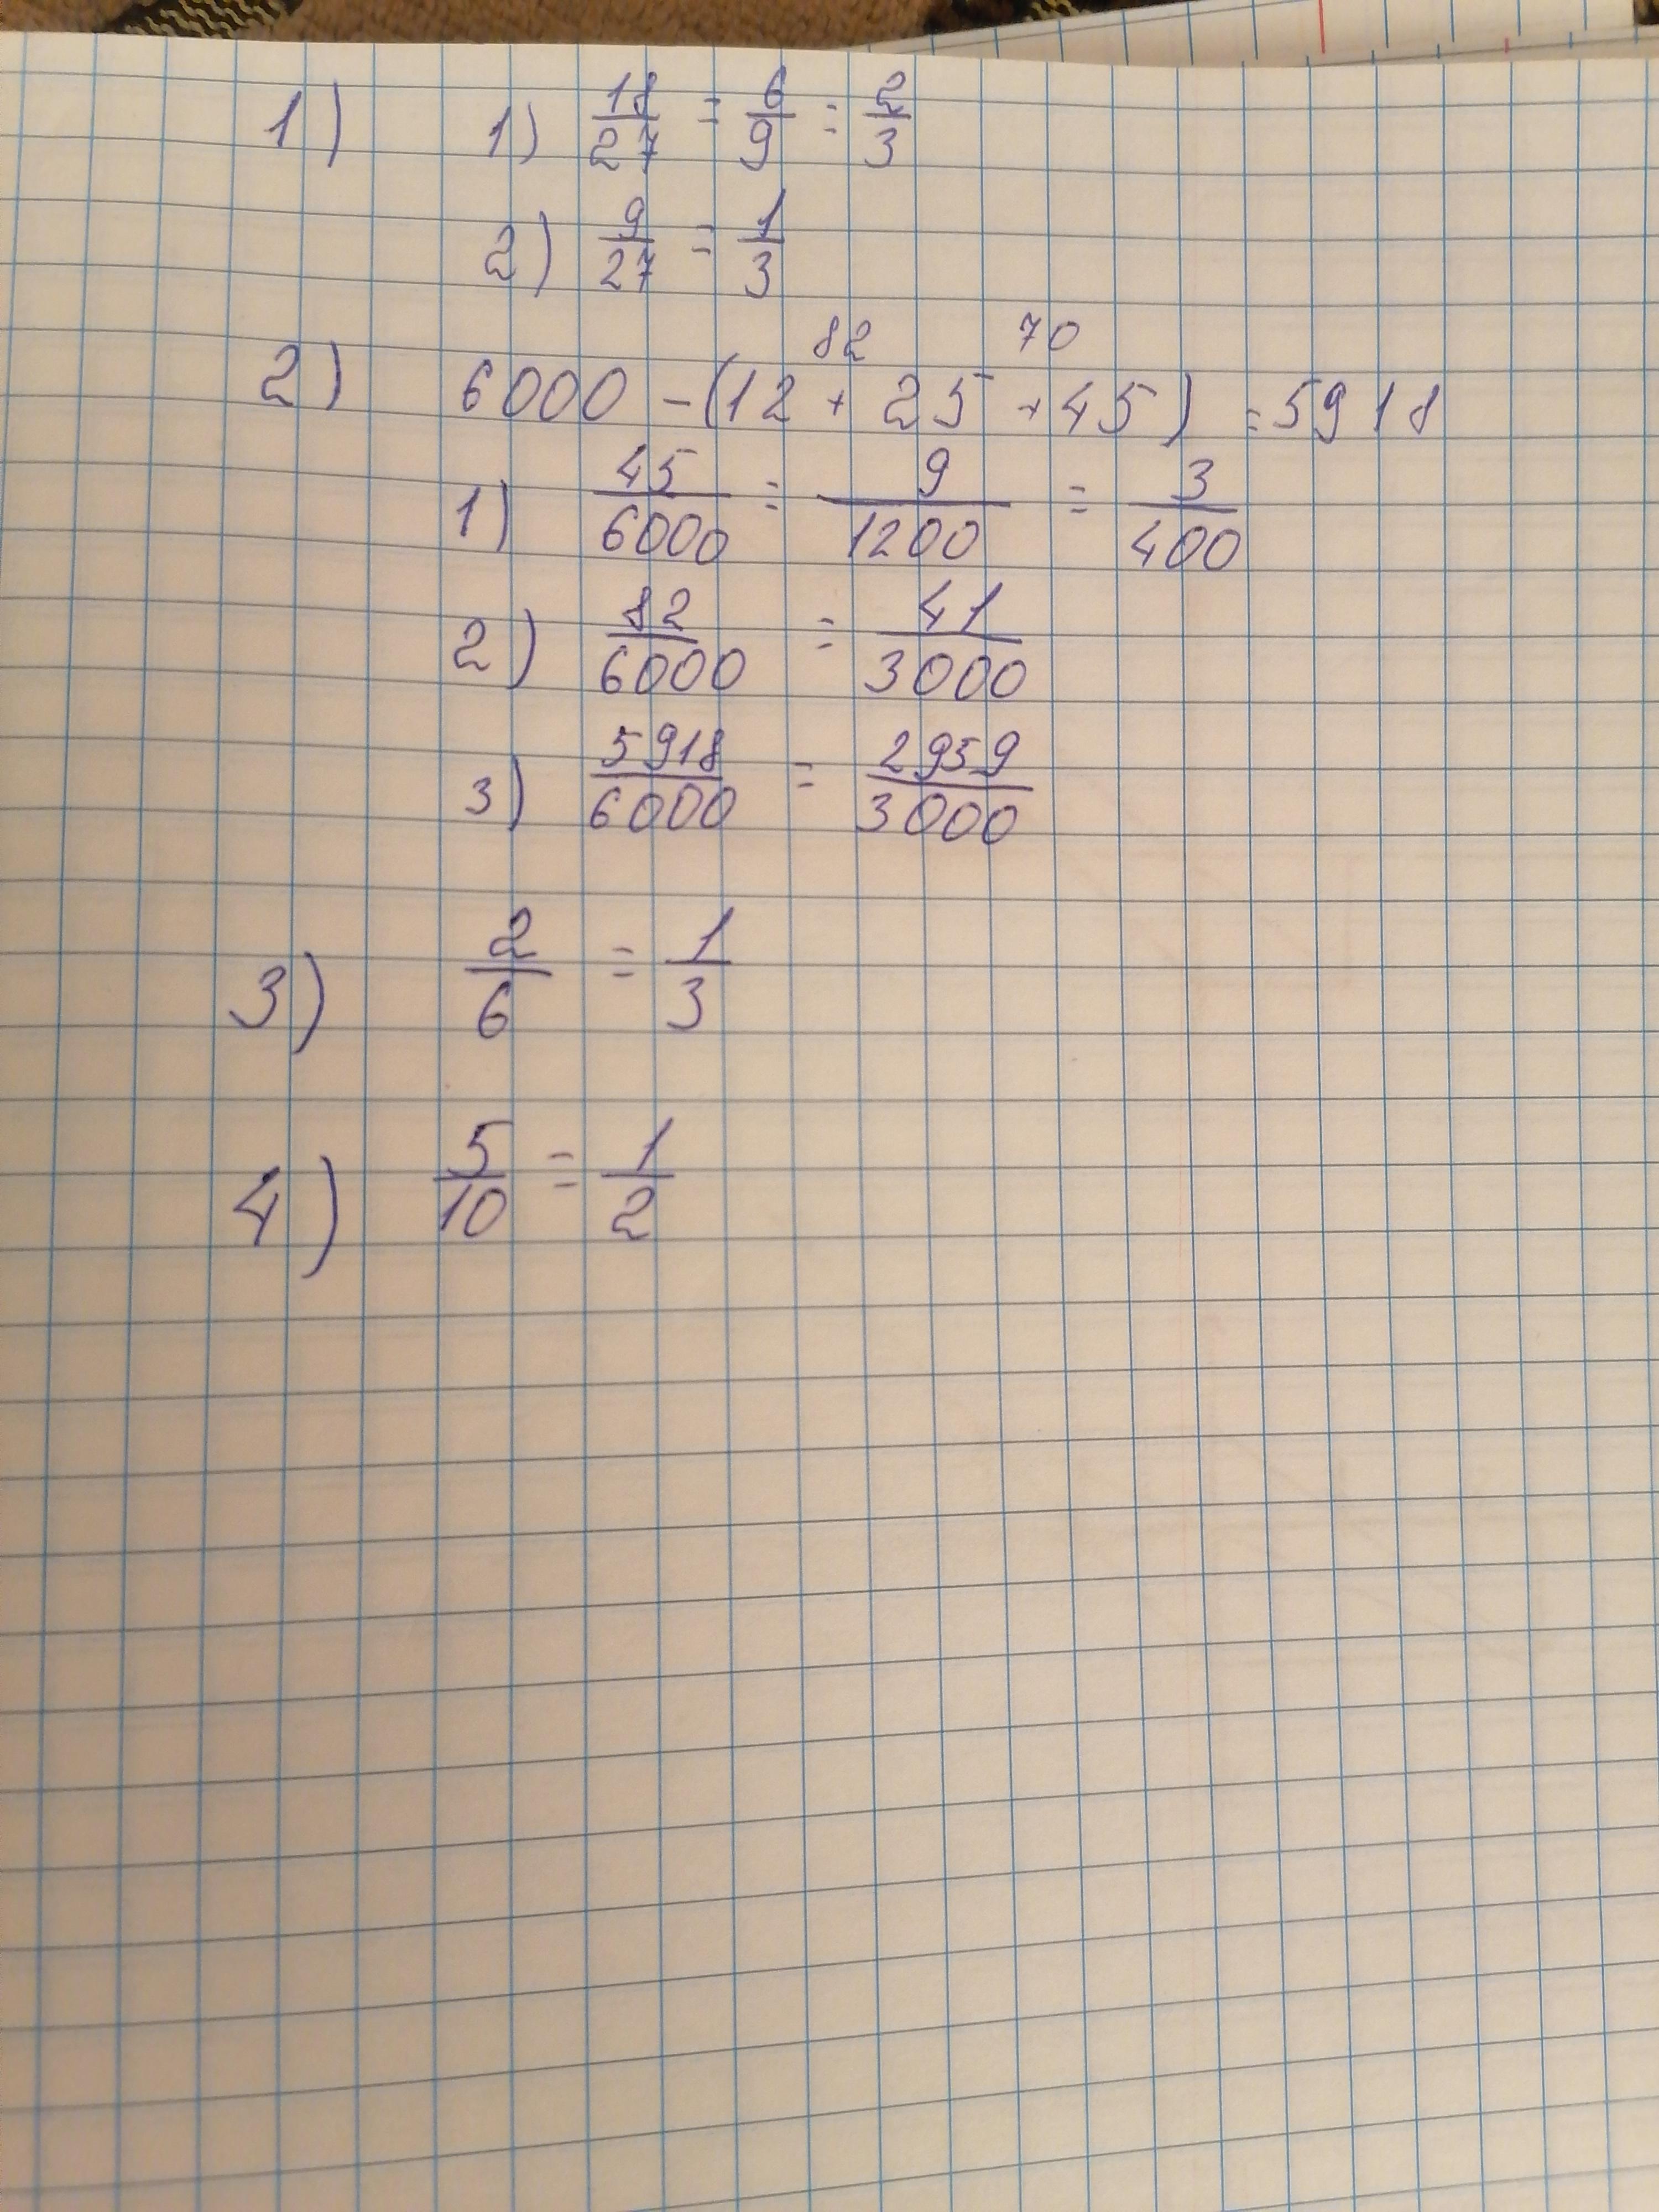 1) 1) 18/27 = 6/9 = 2/3
2) 9/27 = 1/3
82 70
2) 6000 - (12 + 25 + 45) = 5918
1) 45/6000 = 9/1200 = 3/400
2) 82/6000 = 41/3000
3) 5918/6000 = 2959/3000
3) 2/6 = 1/3
4) 5/10 = 1/2